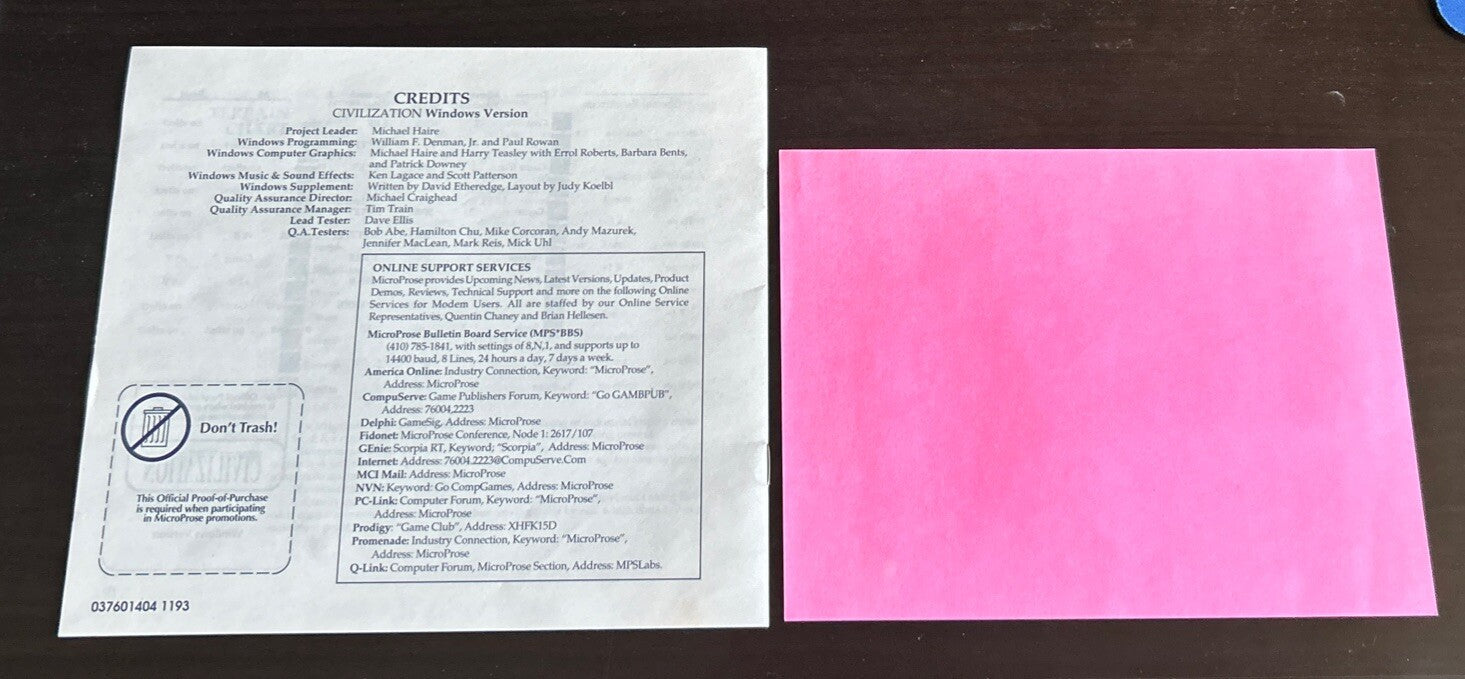 CREDITS
CIVILIZATION Windows Version
Project Leader: Michael Haire
Windows Programming: William F. Denman, Jr. and Paul Rowan
Windows Computer Graphics: Michael Haire and Harry Teasley with Errol Roberts, Barbara Bents,
and Patrick Downey
Windows Music & Sound Effects: Ken Lagace and Scott Patterson
Windows Supplement: Written by David Etheredge, Layout by Judy Koelbl
Quality Assurance Director: Michael Craighead
Quality Assurance Manager: Tim Train
Lead Tester: Dave Ellis
Q.A.Testers: Bob Abe, Hamilton Chu, Mike Corcoran, Andy Mazurek,
Jennifer MacLean, Mark Reis, Mick Uhl
ONLINE SUPPORT SERVICES
MicroProse provides Upcoming News, Latest Versions, Updates, Product
Demos, Reviews, Technical Support and more on the following Online
Services for Modem Users. All are staffed by our Online Service
Representatives, Quentin Chaney and Brian Hellesen.
MicroProse Bulletin Board Service (MPS*BBS)
(410) 785-1841, with settings of 8,N,1, and supports up to
14400 baud, 8 Lines, 24 hours a day, 7 days a week.
America Online: Industry Connection, Keyword: "MicroProse",
Address: MicroProse
CompuServe: Game Publishers Forum, Keyword: "Go GAMBPUB",
Address: 76004,2223
Delphi: GameSig, Address: MicroProse
Fidonet: MicroProse Conference, Node 1: 2617/107
GEnie: Scorpia RT, Keyword; "Scorpia", Address: MicroProse
Internet: Address: 76004.2223@CompuServe.Com
MCI Mail: Address: MicroProse
NVN: Keyword: Go CompGames, Address: MicroProse
PC-Link: Computer Forum, Keyword: "MicroProse",
Address: MicroProse
Prodigy: "Game Club", Address: XHFK15D
Promenade: Industry Connection, Keyword: "MicroProse",
Address: MicroProse
Q-Link: Computer Forum, MicroProse Section, Address: MPSLabs.
Don't Trash!
This Official Proof-of-Purchase
is required when participating
in MicroProse promotions.
037601404 1193